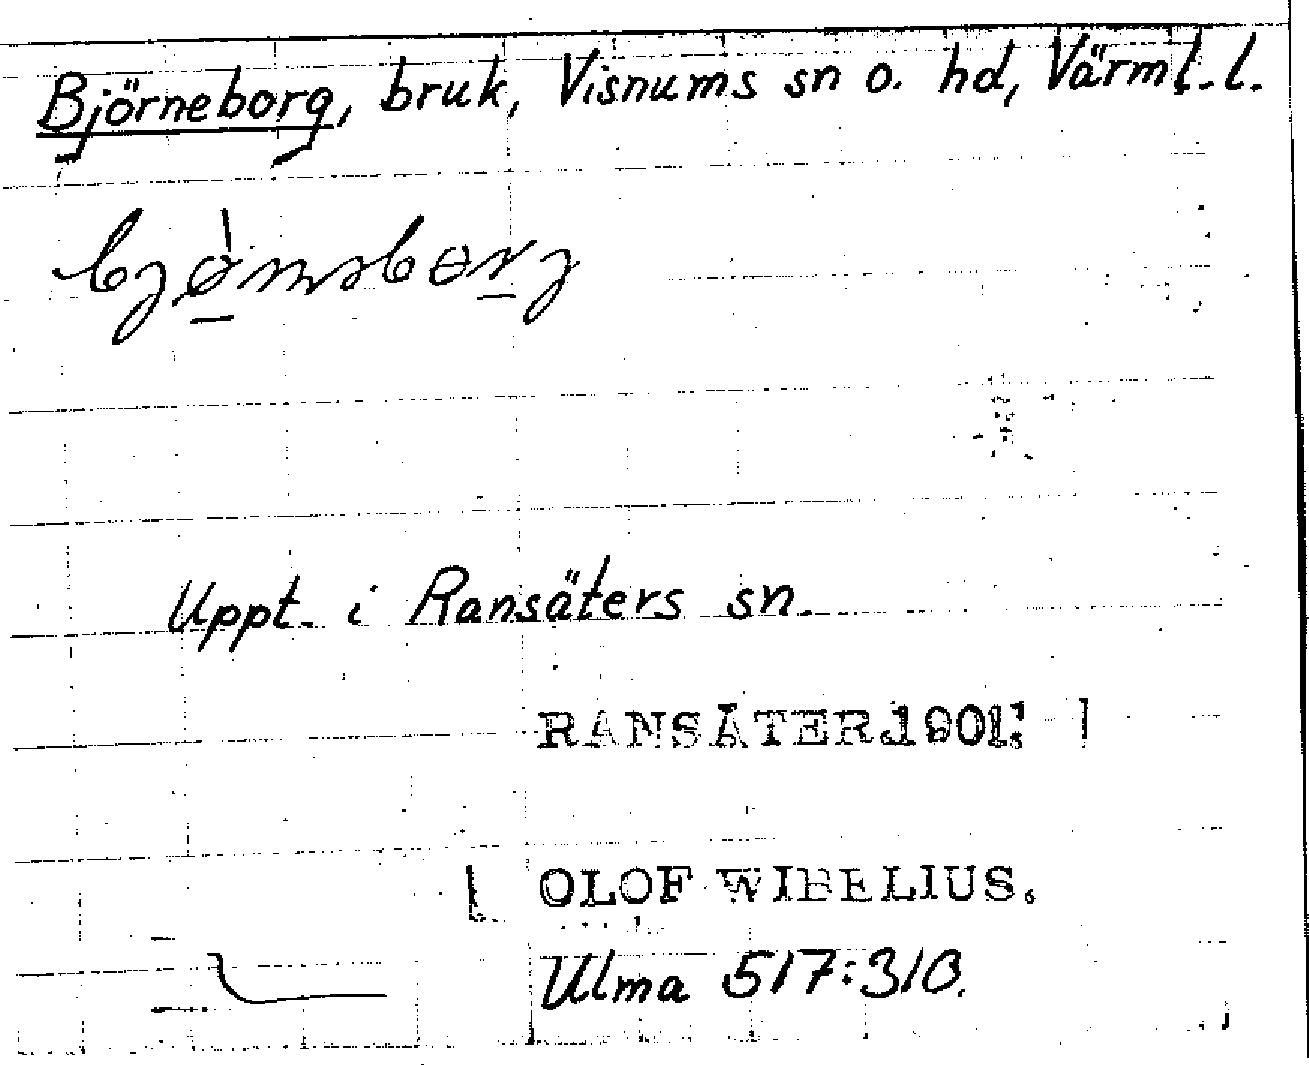 Björneborg, bruk, Visnums sn o. hd, Värml. l.
Uppt. i Ransäters sn.
RANSÄTER.1901.
OLOF WIBELIUS.
Ulma 517:310.